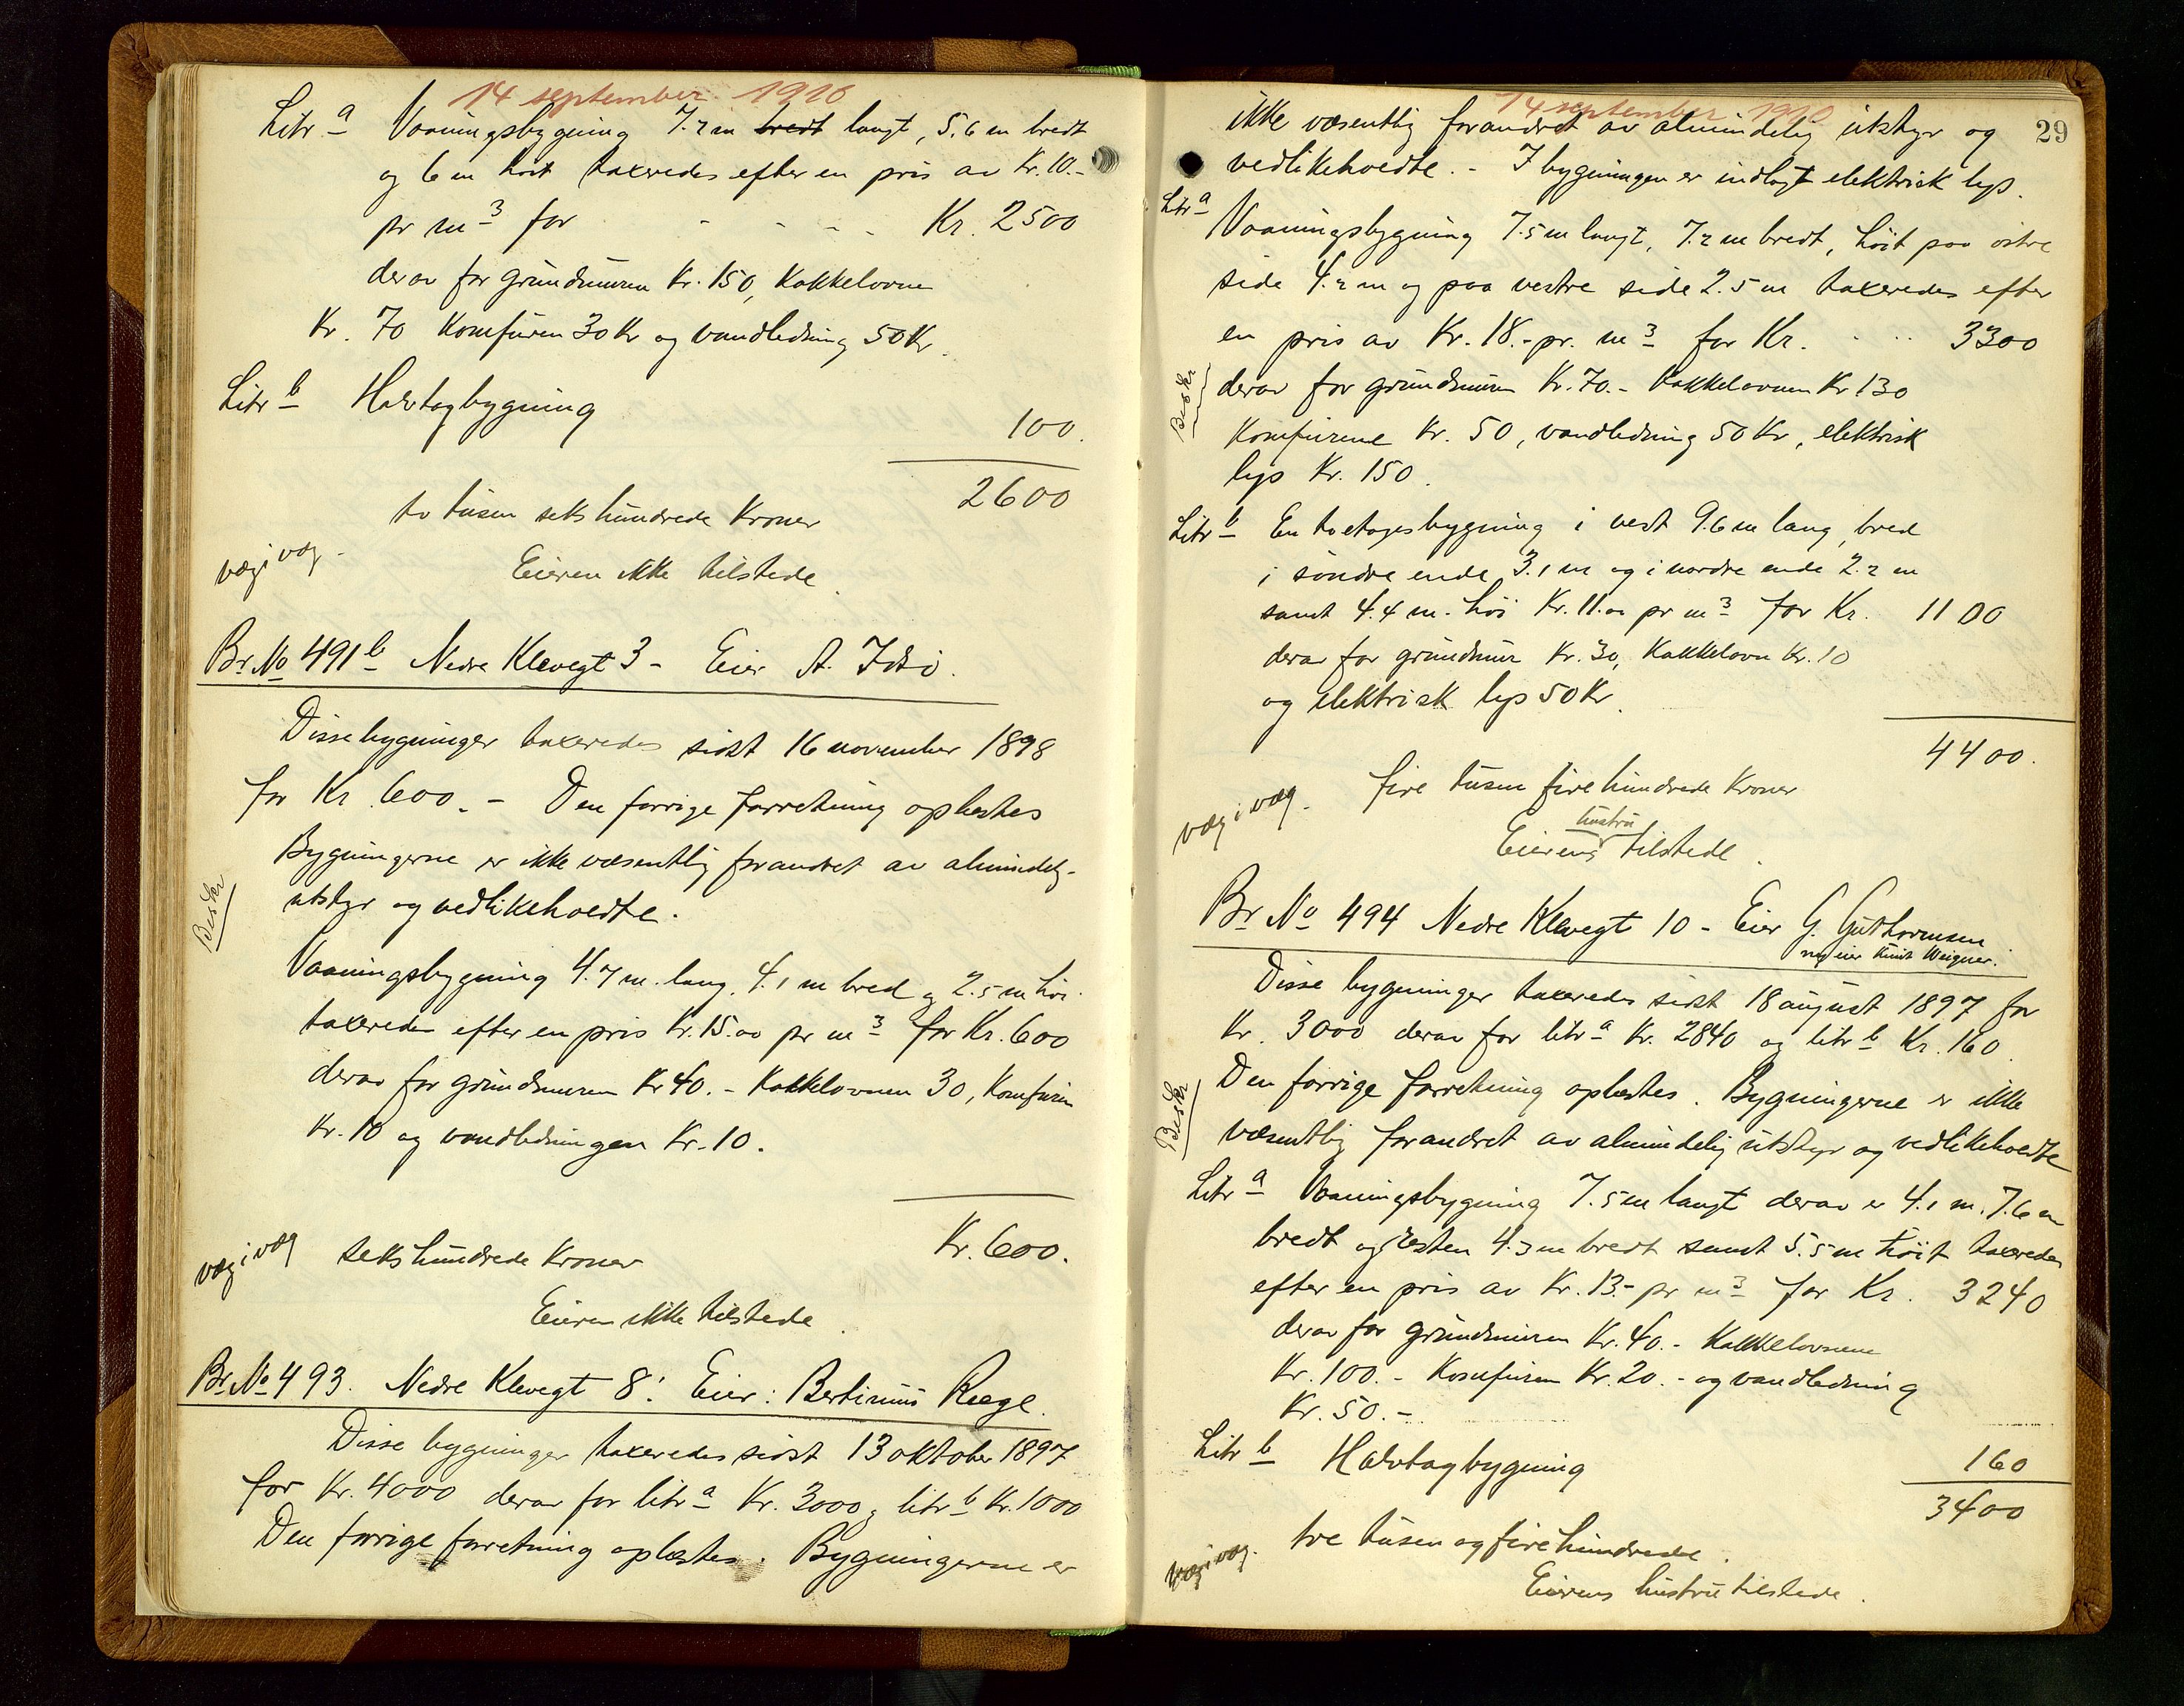 14 september 1910
Litr a Vaaningsbygning 7.2 m bredt langt, 5.6 m bredt
og 6 m høit taxeredes efter en pris av Kr. 10.-
pr m3 for - - - - Kr. 2500
derav for grundmuren Kr. 150, Kakkelovne
Kr. 70 Komfuren 30 Kr og vandledning 50 Kr.
Litr b Halvtagbygning
100.
2600
to tusen seks hundrede Kroner
væg i væg.
Eieren ikke tilstede.
Br. No 491 b Nedre Klevegt 3 - Eier A. Idsø.
Disse bygninger taxeredes sidst 16 november 1898
for Kr. 600.- Den forrige forretning oplæstes
Bygningerne er ikke væsentlig forandret av almindelig
utstyr og vedlikeholdte.
Beskr
Vaaningsbygning 4.7 m. lang, 4.1 m bred og 2.5 m høi.
taxeredes efter en pris Kr. 15.00 pr m3 for Kr. 600
derav for grundmuren Kr 40.- Kakkelovnen 30, Komfuren
Kr. 10 og vandledningen Kr. 10.
Kr. 600.
væg i væg seks hundrede Kroner
Eieren ikke tilstede.
Br. No 493. Nedre Klevegt 8. Eier: Bertinius Rege.
Disse bygninger taxeredes sidst 13 oktober 1897
for Kr. 4000 derav for litr a Kr. 3000 og litr b Kr. 1000
Den forrige forretning oplæstes. Bygningerne er
14 september 1910
29
ikke væsentlig forandret av almindelig utstyr og
vedlikeholdte.- I bygningen er indlagt elektrisk lys.
Litr a
Vaaningsbygning 7.5 m langt, 7.2 m bredt, høit paa østre
side 4.2 m og paa vestre side 2.5 m taxeredes efter
en pris av Kr. 18.- pr. m3 for Kr. 3300
Beskr
derav for grundmuren Kr. 70.- Kakkelovnen Kr 130
Komfurene Kr. 50, vandledning 50 Kr, elektrisk
lys Kr. 150.
Litr b En toetagesbygning i vest 9.6 m lang, bred
i søndre ende 3.1 m og i nordre ende 2.2 m
samt 4.4 m. høi Kr. 11.00 pr m3 for Kr. 1100
derav for grundmur Kr. 30, Kakkelovn Kr. 10
og elektrisk lys 50 Kr.
4400.
væg i væg. fire tusen fire hundrede Kroner
hustru
Eierens tilstede.
Br. No 494 Nedre Klevegt 10 - Eier G. Guthormsen
ny eier Knut Weigner.
Disse bygninger taxeredes sidst 18 august 1897 for
Kr. 3000 derav for litr a Kr. 2840 og litr b Kr. 160.
Beskr
Den forrige forretning oplæstes. Bygningerne er ikke
væsentlig forandret av almindelig utstyr og vedlikeholdte
Litr a Vaaningsbygning 7.5 m langt derav er 4.1 m. 7.6 m
bredt og resten 4.3 m bredt samt 5.5 m høit taxeredes
efter en pris av Kr. 13.- pr m3 for Kr. 3240
derav for grundmuren Kr. 40.- Kakkelovnene
Kr. 100.- Komfuren Kr. 20.- og vandledning
Kr. 50.-
Litr b Halvtagbygning
160
3400
væg i væg. tre tusen og fire hundrede.
Eierens hustru tilstede.